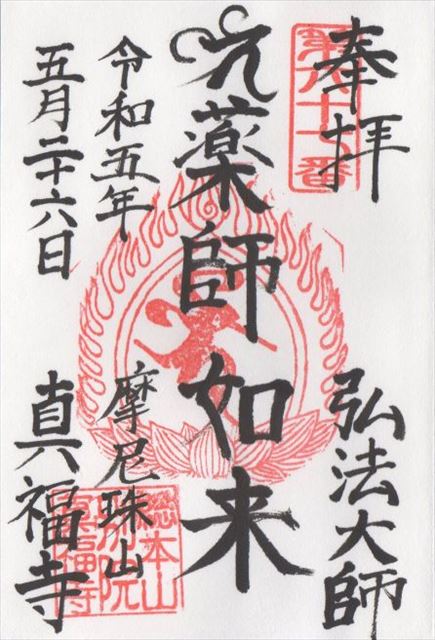 奉拝
第六十七番
弘法大師
薬師如来
令和五年
五月二十六日
摩尼珠山
真福寺
総本山
別院
真福寺